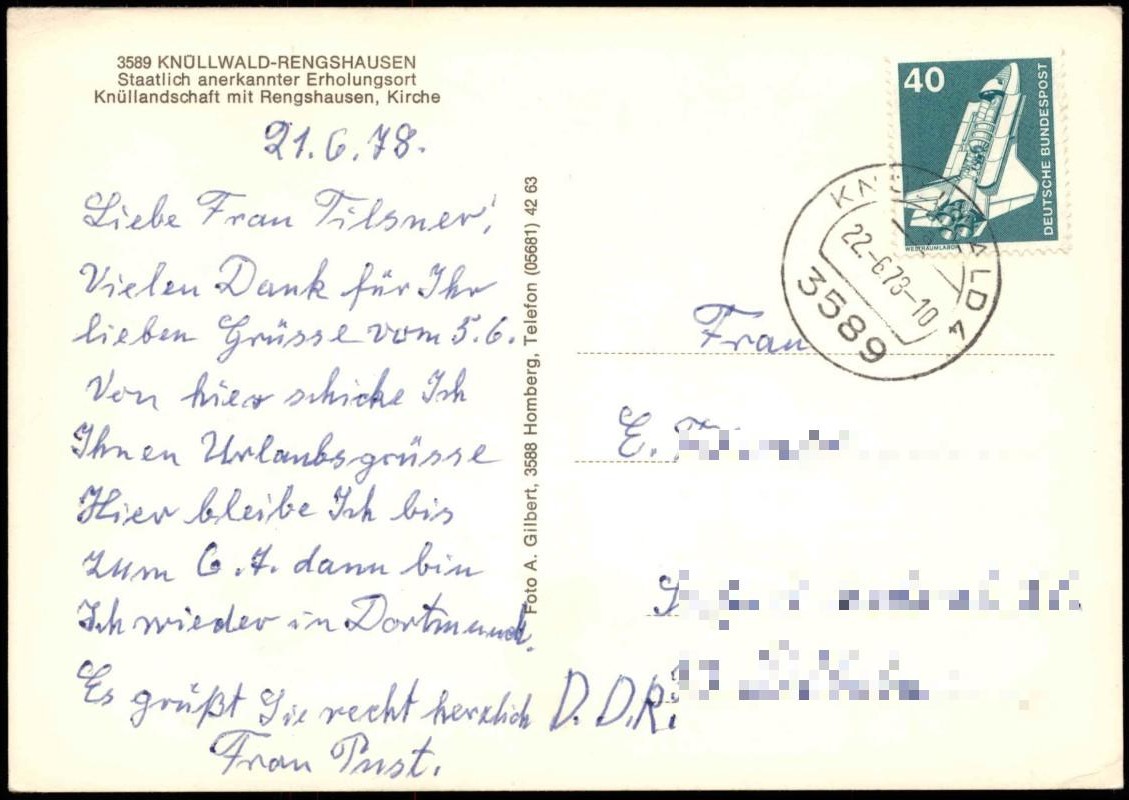 3589 KNÜLLWALD-RENGSHAUSEN
Staatlich anerkannter Erholungsort
Knüllandschaft mit Rengshausen, Kirche
21.6.78.
Liebe Frau Tilsner!
Vielen Dank für Ihr
lieben Grüsse vom 5.6.
Von hier schicke Ich
Ihnen Urlaubsgrüsse
Hier bleibe Ich bis
zum 6.7. dann bin
Ich wieder in Dortmund.
Es grüßt Sie recht herzlich
Frau Pust.
Foto A. Gilbert, 3588 Homberg, Telefon (05681) 42 63
40
DEUTSCHE BUNDESPOST
WELTRAUMLABOR
22.-6.78-10
3589
Frau
E.
D.D.R.